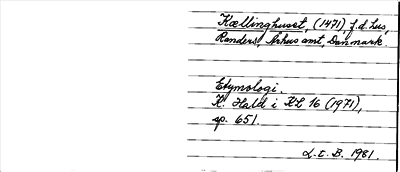 Kællinghuset, (1471), f.d. hus,
Randers, Århus amt, Danmark.
Etymologi.
K. Hald i KL 16 (1971),
sp. 651.
L.E.B. 1981.